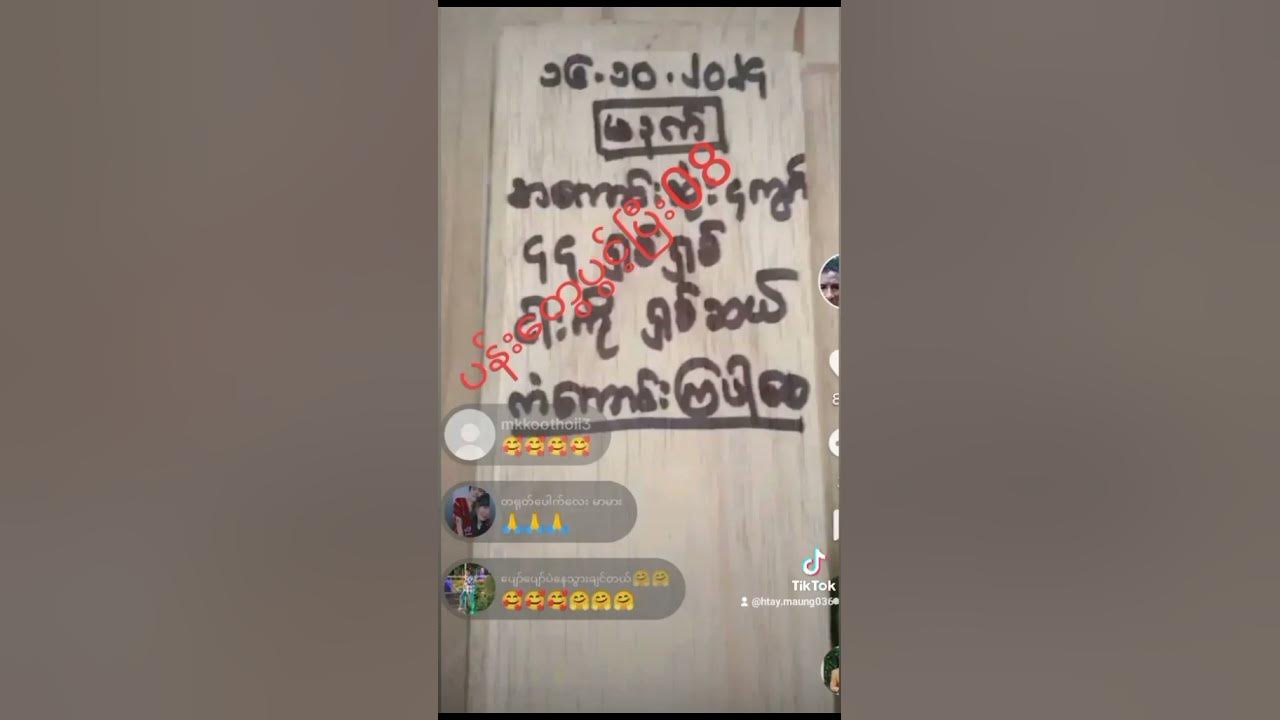 ၁၆.၁၀.၂၀၂၄
မနက်
အကောင်းဆုံး ၄ကွက်
၄၄ ရှစ်ရှစ်
ငါးကို ရှစ်ဆယ်
ကံကောင်းကြပါစေ
ပန်းတွေပွင့်ပြီး08
mkkoothoil3
🥰🥰🥰🥰
တရုတ်ပေါက်လေး မာမား
🙏🙏🙏
ပျော်ပျော်ပဲနေသွားချင်တယ်🤗🤗
🥰🥰🥰🤗🤗🤗
TikTok
@htay.maung036